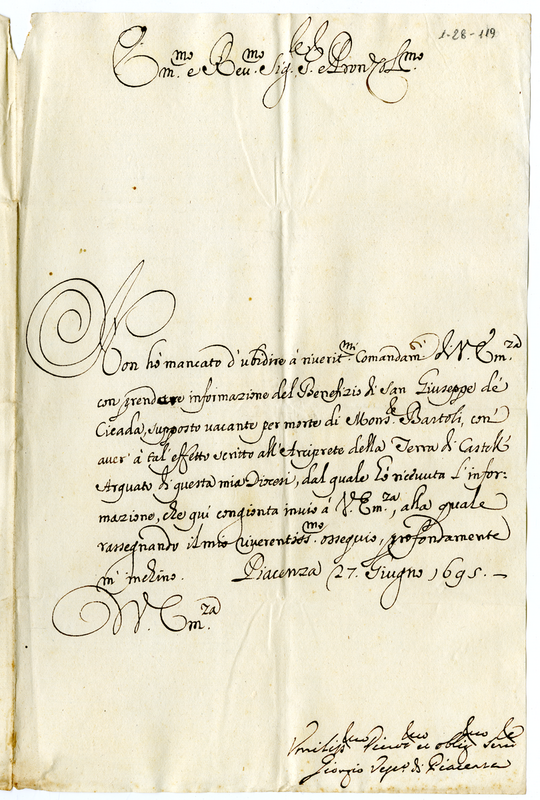 1-28-119
Em.mo e Reu.mo Sig.r S. e Pron Col.mo
Non hò mancato d'ubidire à riuerit.mi Comandam.ti di V. Em.za
con prendere informazione del Benefizio di San Giuseppe de
Cicada, supposto vacante per morte di Mons.r Bartoli, con
auer à tal' effetto scritto all'Arciprete della Terra di Castel
Arquato di questa mia Diocesi, dal quale hò riceuuta l'infor-
mazione, che qui congionta inuio à V. Em.za, alla quale
rassegnando il mio riuerentiss.mo ossequio, profondamente
m'inchino. Piacenza 27. Giugno 1695. –
V. Em.za
Vmiliss.mo Deuot.mo et oblig.mo Ser.re
Giorgio Vesc.o di Piacenza